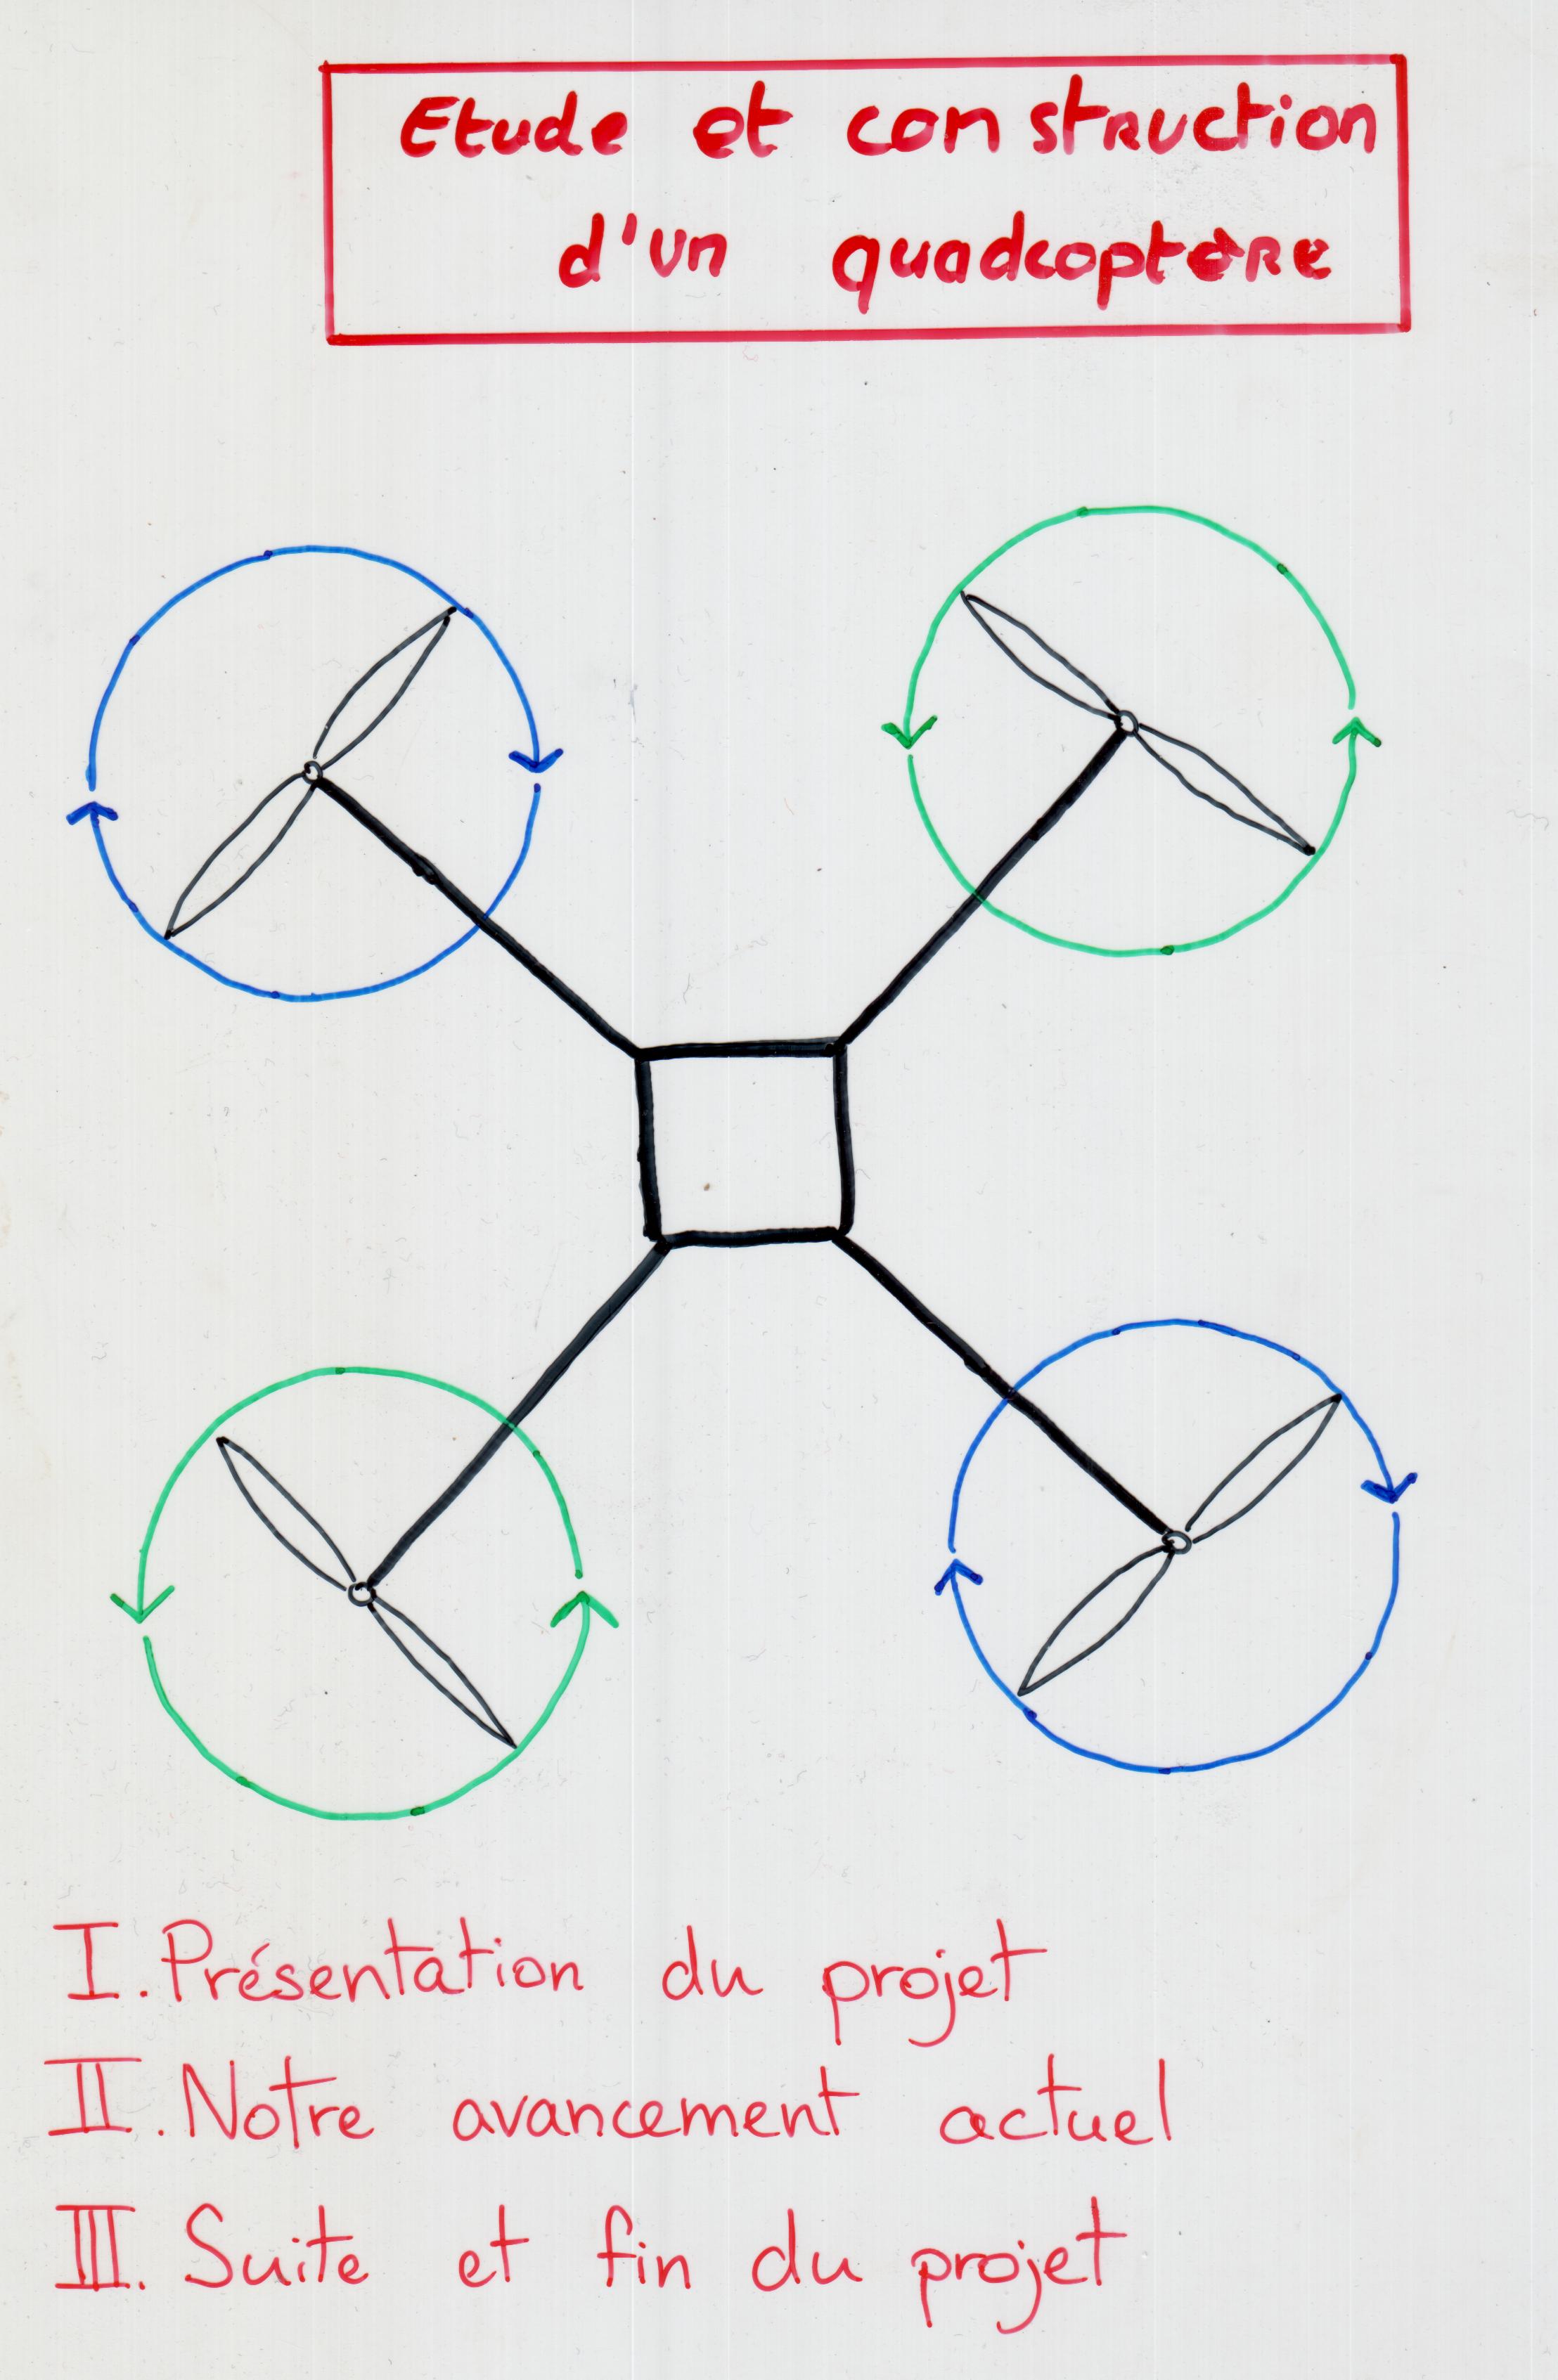 Etude et construction
d'un quadcoptère
I. Présentation du projet
II. Notre avancement actuel
III. Suite et fin du projet